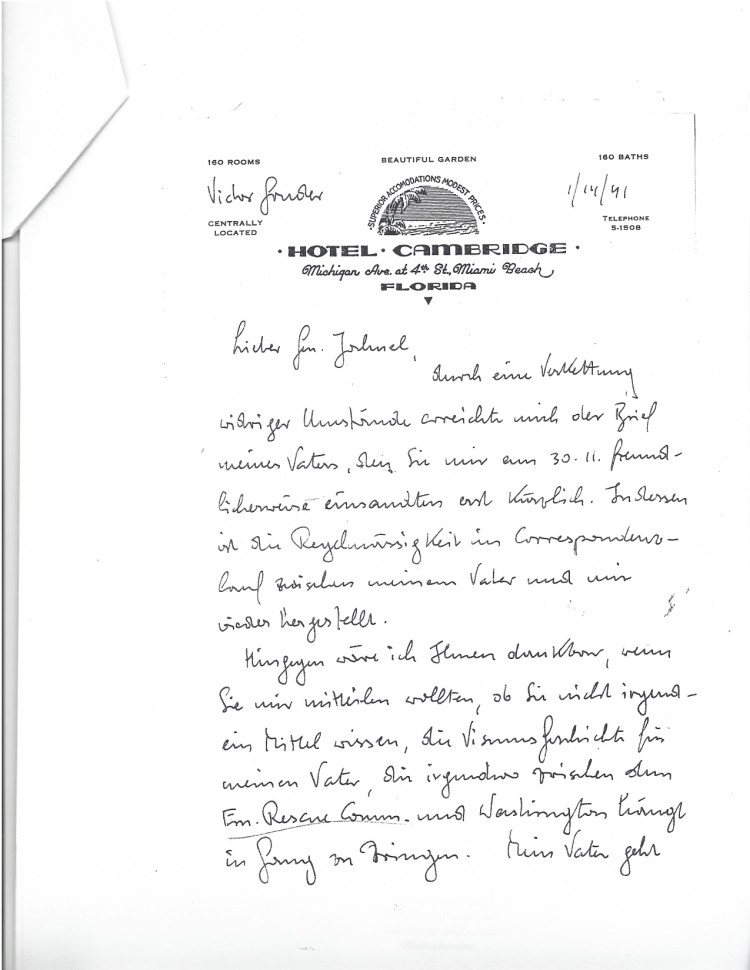 160 ROOMS
BEAUTIFUL GARDEN
160 BATHS
Victor
1/14/41
SUPERIOR ACCOMODATIONS MODEST PRICES
CENTRALLY
LOCATED
TELEPHONE
5-1508
· HOTEL · CAMBRIDGE ·
Michigan Ave. at 4th St., Miami Beach
FLORIDA
Lieber
durch eine Verkettung
widriger Umstände erreichte mich der Brief
meines Vaters, den Sie mir am 30.11. freund-
licherweise einsandten erst kürzlich. Indessen
ist die Regelmässigkeit im Correspondenz-
lauf zwischen meinem Vater und mir
wieder hergestellt.
Hingegen wäre ich Ihnen dankbar, wenn
Sie mir mitteilen wollten, ob Sie nicht irgend-
ein Mittel wissen, die Visumsgeschichte für
meinen Vater, die irgendwo zwischen dem
Em. Rescue Comm. und Washington hängt
in Gang zu bringen. Mein Vater geht